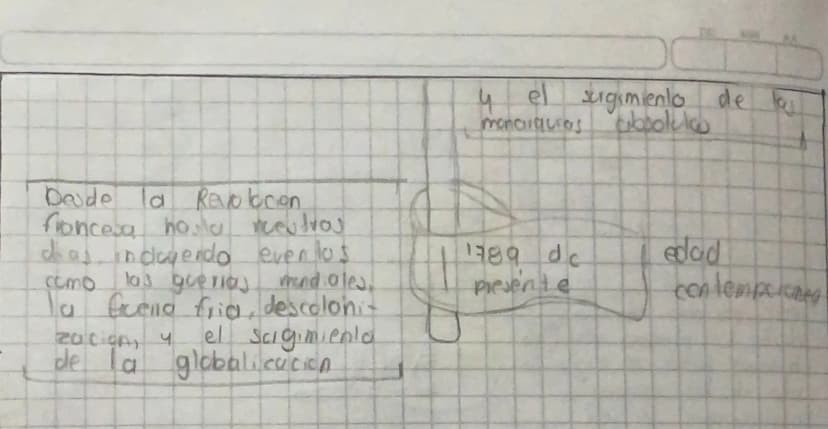 y el surgimiento de las
monarquias absolutas
Desde la Revolucion
francesa hasta nuestros
dias, incluyendo eventos
como las guerras mundiales,
la guerra fria, descoloni-
zacion, y el surgimiento
de la globalizacion
1789 dc
presente
edad
contemporanea